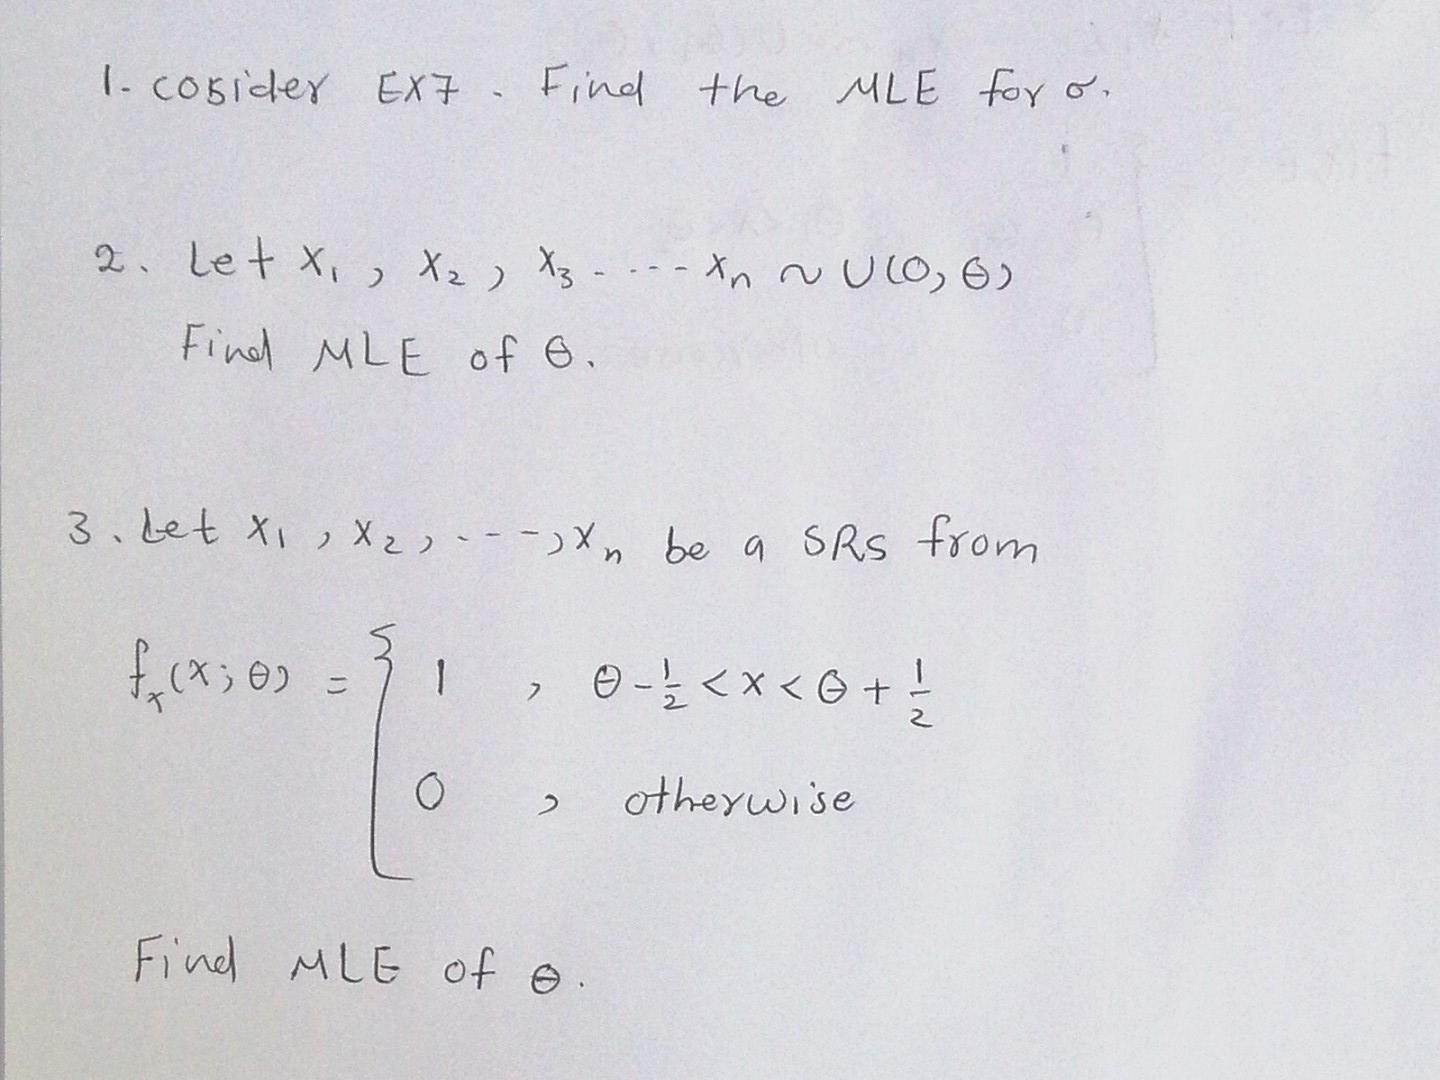 1. cosider EX7. Find the MLE for σ.
2. Let x₁, x₂, x₃ - --- xₙ ~ U(0, θ)
Find MLE of θ.
3. Let x₁, x₂, ---, xₙ be a SRS from
fₓ(x; θ) = { 1 , θ - 1/2 < x < θ + 1/2
0 , otherwise
Find MLE of θ.